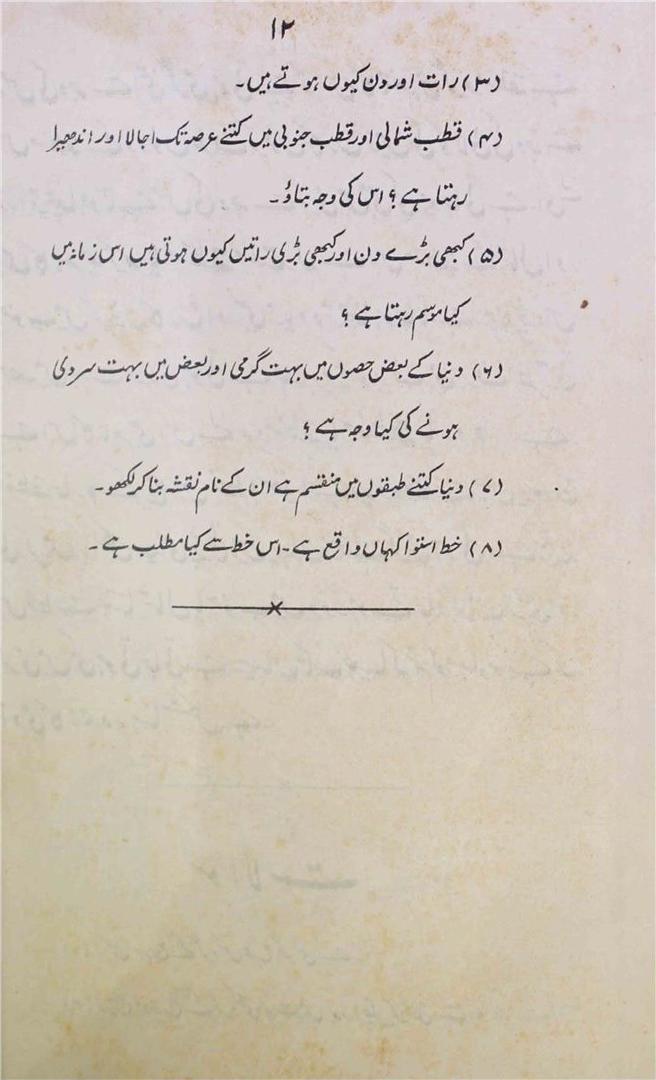 ۱۲
(۳) رات اور دن کیوں ہوتے ہیں۔
(۴) قطب شمالی اور قطب جنوبی میں کتنے عرصہ تک اجالا اور اندھیرا
رہتا ہے؟ اس کی وجہ بتاؤ۔
(۵) کبھی بڑے دن اور کبھی بڑی راتیں کیوں ہوتی ہیں اس زمانہ میں
کیا موسم رہتا ہے؟
(۶) دنیا کے بعض حصوں میں بہت گرمی اور بعض میں بہت سردی
ہونے کی کیا وجہ ہے؟
(۷) دنیا کتنے طبقوں میں منقسم ہے ان کے نام نقشہ بنا کر لکھو۔
(۸) خط استوا کہاں واقع ہے۔ اس خط سے کیا مطلب ہے۔